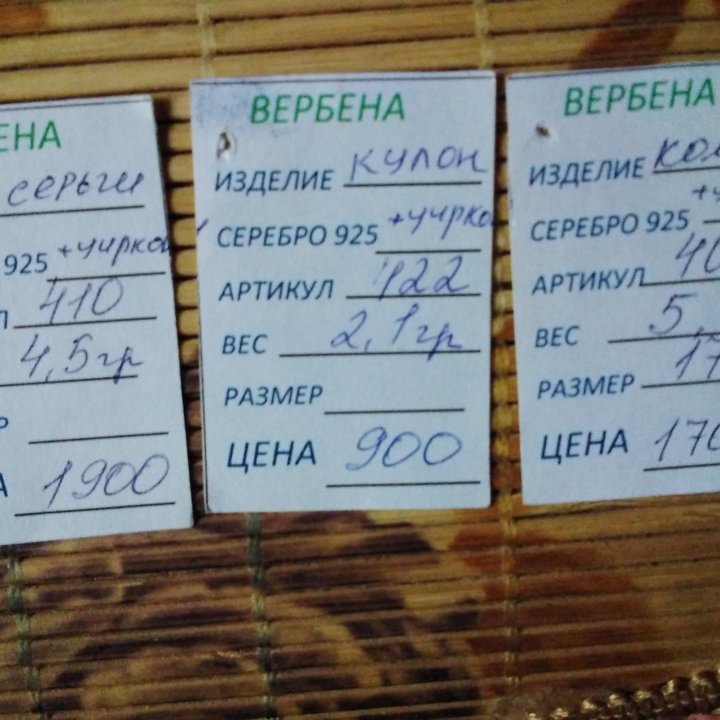 ЕНА
серьги
925 +чирко
Л 410
4,5гр
Р
А 1900
ВЕРБЕНА
ИЗДЕЛИЕ кулон
СЕРЕБРО 925 +чирко
АРТИКУЛ 422
ВЕС 2,1гр
РАЗМЕР
ЦЕНА 900
ВЕРБЕНА
ИЗДЕЛИЕ кол
СЕРЕБРО 925 +ч
АРТИКУЛ 40
ВЕС 5,
РАЗМЕР 17
ЦЕНА 170